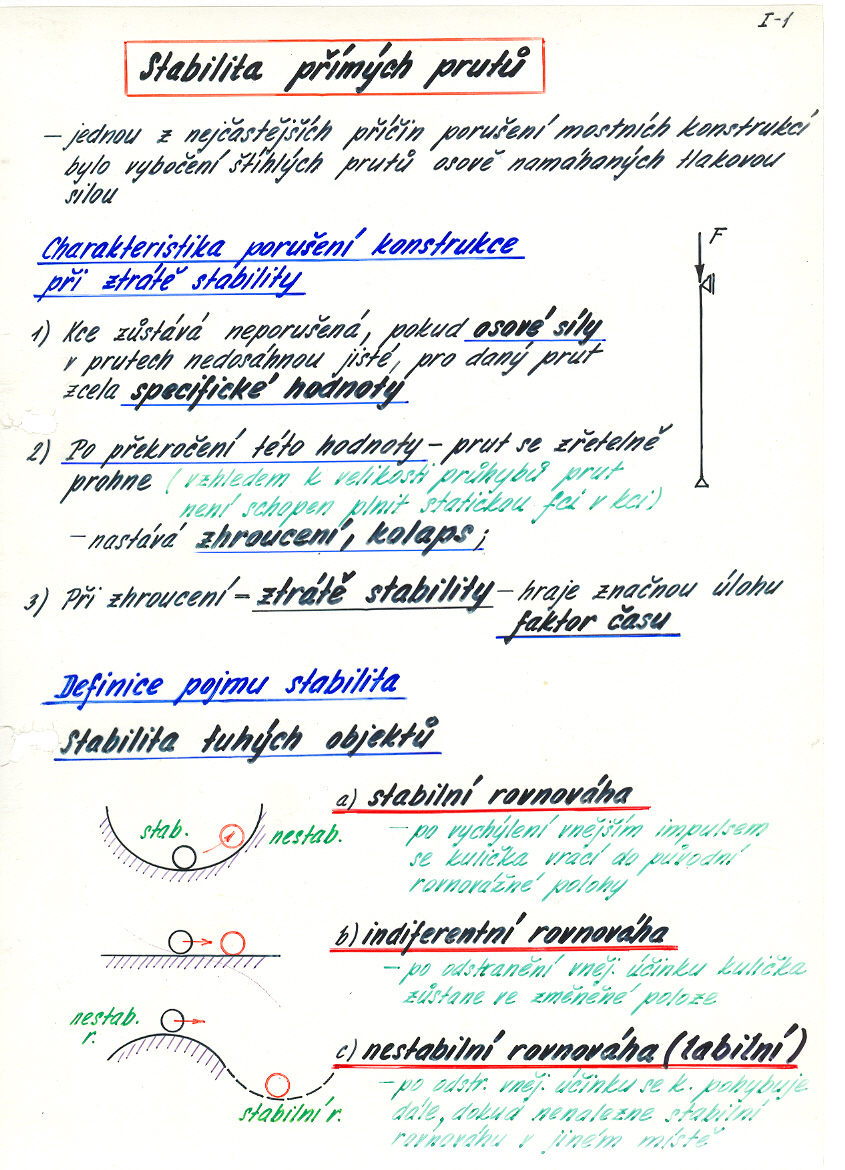 I-1
Stabilita přímých prutů
– jednou z nejčastějších příčin porušení mostních konstrukcí
bylo vybočení štíhlých prutů osově namáhaných tlakovou
silou
Charakteristika porušení konstrukce
při ztrátě stability
F
1) Kce zůstává neporušená, pokud osové síly
v prutech nedosáhnou jisté, pro daný prut
zcela specifické hodnoty
2) Po překročení této hodnoty – prut se zřetelně
prohne (vzhledem k velikosti průhybů prut
není schopen plnit statickou fci v kci)
– nastává zhroucení, kolaps;
3) Při zhroucení = ztrátě stability – hraje značnou úlohu
faktor času
Definice pojmu stabilita
Stabilita tuhých objektů
a) stabilní rovnováha
stab.
nestab.
– po vychýlení vnějším impulsem
se kulička vrací do původní
rovnovážné polohy
b) indiferentní rovnováha
– po odstranění vněj. účinku kulička
zůstane ve změněné poloze
nestab.
r.
c) nestabilní rovnováha (labilní)
– po odstr. vněj. účinku se k. pohybuje
stabilní r.
dále, dokud nenalezne stabilní
rovnováhu v jiném místě